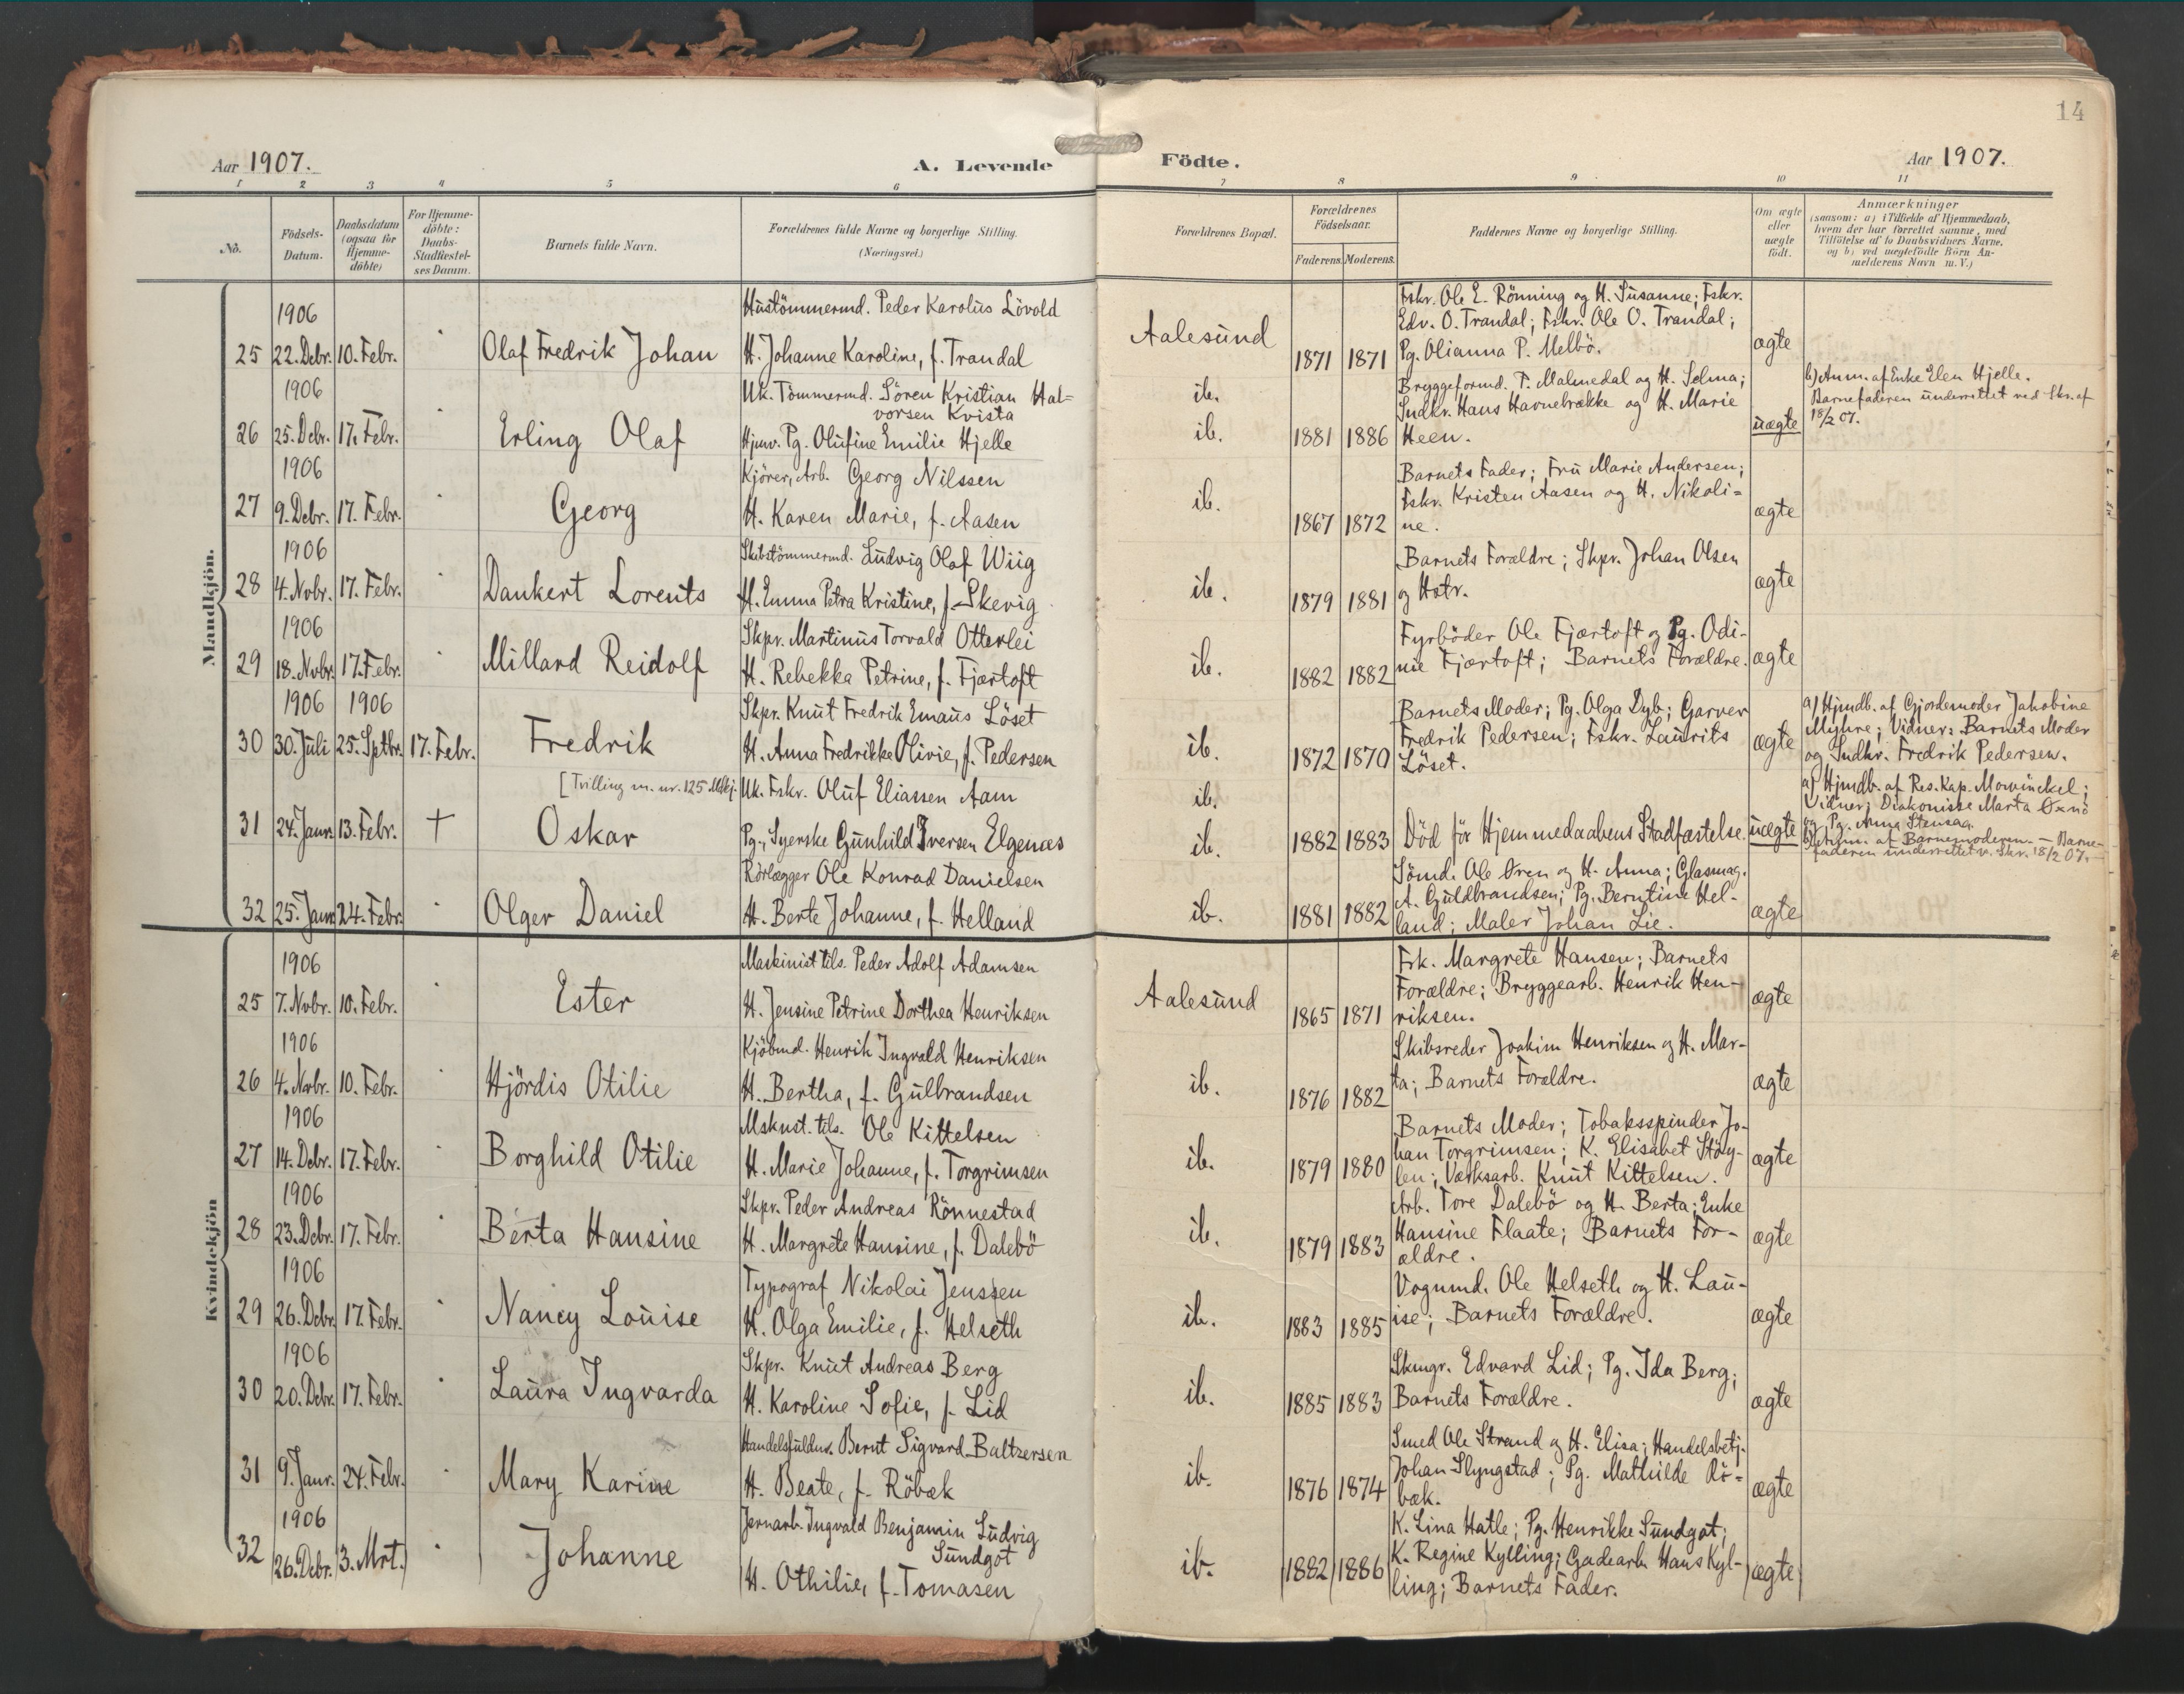 14
Aar 1907.
A. Levende
Födte.
Aar 1907.
1 2 3 4 5 6 7 8 9 10 11
No.
Födsels-
Datum.
Daabsdatum
(ogsaa for
Hjemme-
döbte)
For Hjemme-
döbte:
Daabs-
Stadfæstel-
ses Datum.
Barnets fulde Navn.
Forældrenes fulde Navne og borgerlige Stilling.
(Næringsvei.)
Forældrenes Bopæl.
Forældrenes
Födselsaar.
Faderens. Moderens.
Faddernes Navne og borgerlige Stilling.
Om ægte
eller
uægte
født.
Anmærkninger
(saasom: a) i Tilfælde af Hjemmedaab,
hvem der har forrettet samme, med
Tilföielse af to Daabsvidners Navne,
og b) ved uægtefödte Börn An-
melderens Navn m.V.)
Mandkjön.
1906
25 22. Debr. 10. Febr.
Olaf Fredrik Johan
Hustömmermd. Peder Karolus Lövold
H. Johanne Karoline, f. Trandal
Aalesund
1871 1871
Fskr. Ole E. Rönning og H. Susanne; Fskr.
Edv. O. Trandal; Fskr. Ole O. Trandal;
Pg. Olianna P. Melbö.
ægte
1906
26 25. Debr. 17. Febr.
Erling Olaf
Uk. Tömmermd. Sören Kristian Hal-
vorsen Kvista
Hjmv. Pg. Olufine Emilie Hjelle
ib.
ib.
1881 1886
Bryggeformd. P. Malmedal og H. Selma;
Sndkr. Hans Havnebrække og H. Marie
Heen.
uægte
b) Anm. af Enke Elen Hjelle.
Barnefaderen underrettet ved Skr. af
18/2 07.
1906
27 9. Debr. 17. Febr.
Georg
Kjörer, Arb. Georg Nilssen
H. Karen Marie, f. Aasen
ib.
1867 1872
Barnets Fader; Fru Marie Andersen;
Fskr. Kristen Aasen og H. Nikoli-
ne.
ægte
1906
28 4. Novbr. 17. Febr.
Dankert Lorents
Skibstömmermd. Ludvig Olaf Wiig
H. Emma Petra Kristine, f. Skevig
ib.
1879 1881
Barnets Forældre; Skpr. Johan Olsen
og Hstr.
ægte
1906
29 18. Novbr. 17. Febr.
Millard Reidolf
Skpr. Martinus Torvald Otterlei
H. Rebekka Petrine, f. Fjærtoft
ib.
1882 1882
Fyrböder Ole Fjærtoft og Pg. Odi-
nie Fjærtoft; Barnets Forældre.
ægte
1906 1906
30 30. Juli 25. Sptbr. 17. Febr.
Fredrik
Skpr. Knut Fredrik Emaus Löset
H. Anna Fredrikke Olivie, f. Pedersen
ib.
1872 1870
Barnets Moder; Pg. Olga Dyb; Garver
Fredrik Pedersen; Fskr. Laurits
Löset.
ægte
a) Hjmdb. af Gjordemoder Jakobine
Myhre; Vidner: Barnets Moder
og Sndkr. Fredrik Pedersen.
[Tvilling m. nr. 125 Mdkj.
31 24. Janr. 13. Febr. †
Oskar
Uk. Fskr. Oluf Eliassen Aam
Pg., Syerske Gunhild Iversen Elgenæs
ib.
ib.
1882 1883
Död för Hjemmedaabens Stadfæstelse.
uægte
a) Hjmdb. af Res. Kap. Mowinckel;
Vidner: Diakonisse Marta Oxnö
og Pg. Anna Stensaa.
b) Anm. af Barnemoderen. – Barne-
faderen underrettet v. Skr. 18/2 07.
32 25. Janr. 24. Febr.
Olger Daniel
Rörlægger Ole Konrad Danielsen
H. Berte Johanne, f. Helland
ib.
1881 1882
Sömd. Ole Øren og H. Anna; Glasmag.
A. Guldbrandsen; Pg. Berntine Hel-
land; Maler Johan Lie.
ægte
Kvindekjön
1906
25 7. Novbr. 10. Febr.
Ester
Maskinist tils. Peder Adolf Adamsen
H. Jensine Petrine Dorthea Henriksen
Aalesund
1865 1871
Frk. Margrete Hansen; Barnets
Forældre; Bryggearb. Henrik Hen-
riksen.
ægte
1906
26 4. Novbr. 10. Febr.
Hjördis Otilie
Kjöbmd. Henrik Ingvald Henriksen
H. Bertha, f. Gulbrandsen
ib.
1876 1882
Skibsreder Joakim Henriksen og H. Mar-
ta; Barnets Forældre.
ægte
1906
27 14. Debr. 17. Febr.
Borghild Otilie
Msknst. tils. Ole Kittelsen
H. Marie Johanne, f. Torgrimsen
ib.
1879 1880
Barnets Moder; Tobaksspinder Jo-
han Torgrimsen; K. Elisabet Støy-
len; Værksarb. Knut Kittelsen.
ægte
1906
28 23. Debr. 17. Febr.
Berta Hansine
Skpr. Peder Andreas Rönnestad
H. Margrete Hansine, f. Dalebö
ib.
1879 1883
Arb. Tore Dalebö og H. Berta; Enke
Hansine Flaate; Barnets For-
ældre.
ægte
1906
29 26. Debr. 17. Febr.
Nancy Louise
Typograf Nikolai Jenssen
H. Olga Emilie, f. Helseth
ib.
1883 1885
Vognmd. Ole Helseth og H. Lau-
ise; Barnets Forældre.
ægte
1906
30 20. Debr. 17. Febr.
Laura Ingvarda
Skpr. Knut Andreas Berg
H. Karoline Sofie, f. Lid
ib.
1885 1883
Skmgr. Edvard Lid; Pg. Ida Berg;
Barnets Forældre.
ægte
31 9. Janr. 24. Febr.
Mary Karine
Handelsfuldm. Bernt Sigvard Baltzersen
H. Beate, f. Röbæk
ib.
1876 1874
Smed Ole Strand og H. Elisa; Handelsbetj.
Johan Slyngstad; Pg. Mathilde Rö-
bæk.
ægte
1906
32 26. Debr. 3. Mrt.
Johanne
Jernarb. Ingvald Benjamin Ludvig
Sundgot
H. Othilie, f. Tomasen
ib.
1882 1886
K. Lina Hatle; Pg. Henrikke Sundgot;
K. Regine Kylling; Gadearb. Hans Kyl-
ling; Barnets Fader.
ægte